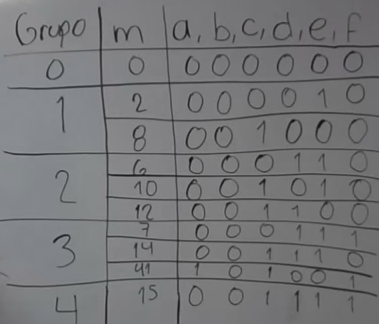 Grupo m a, b, c, d, e, f
0 0 0 0 0 0 0 0
1 2 0 0 0 0 1 0
8 0 0 1 0 0 0
2 6 0 0 0 1 1 0
10 0 0 1 0 1 0
12 0 0 1 1 0 0
3 7 0 0 0 1 1 1
14 0 0 1 1 1 0
41 1 0 1 0 0 1
4 15 0 0 1 1 1 1